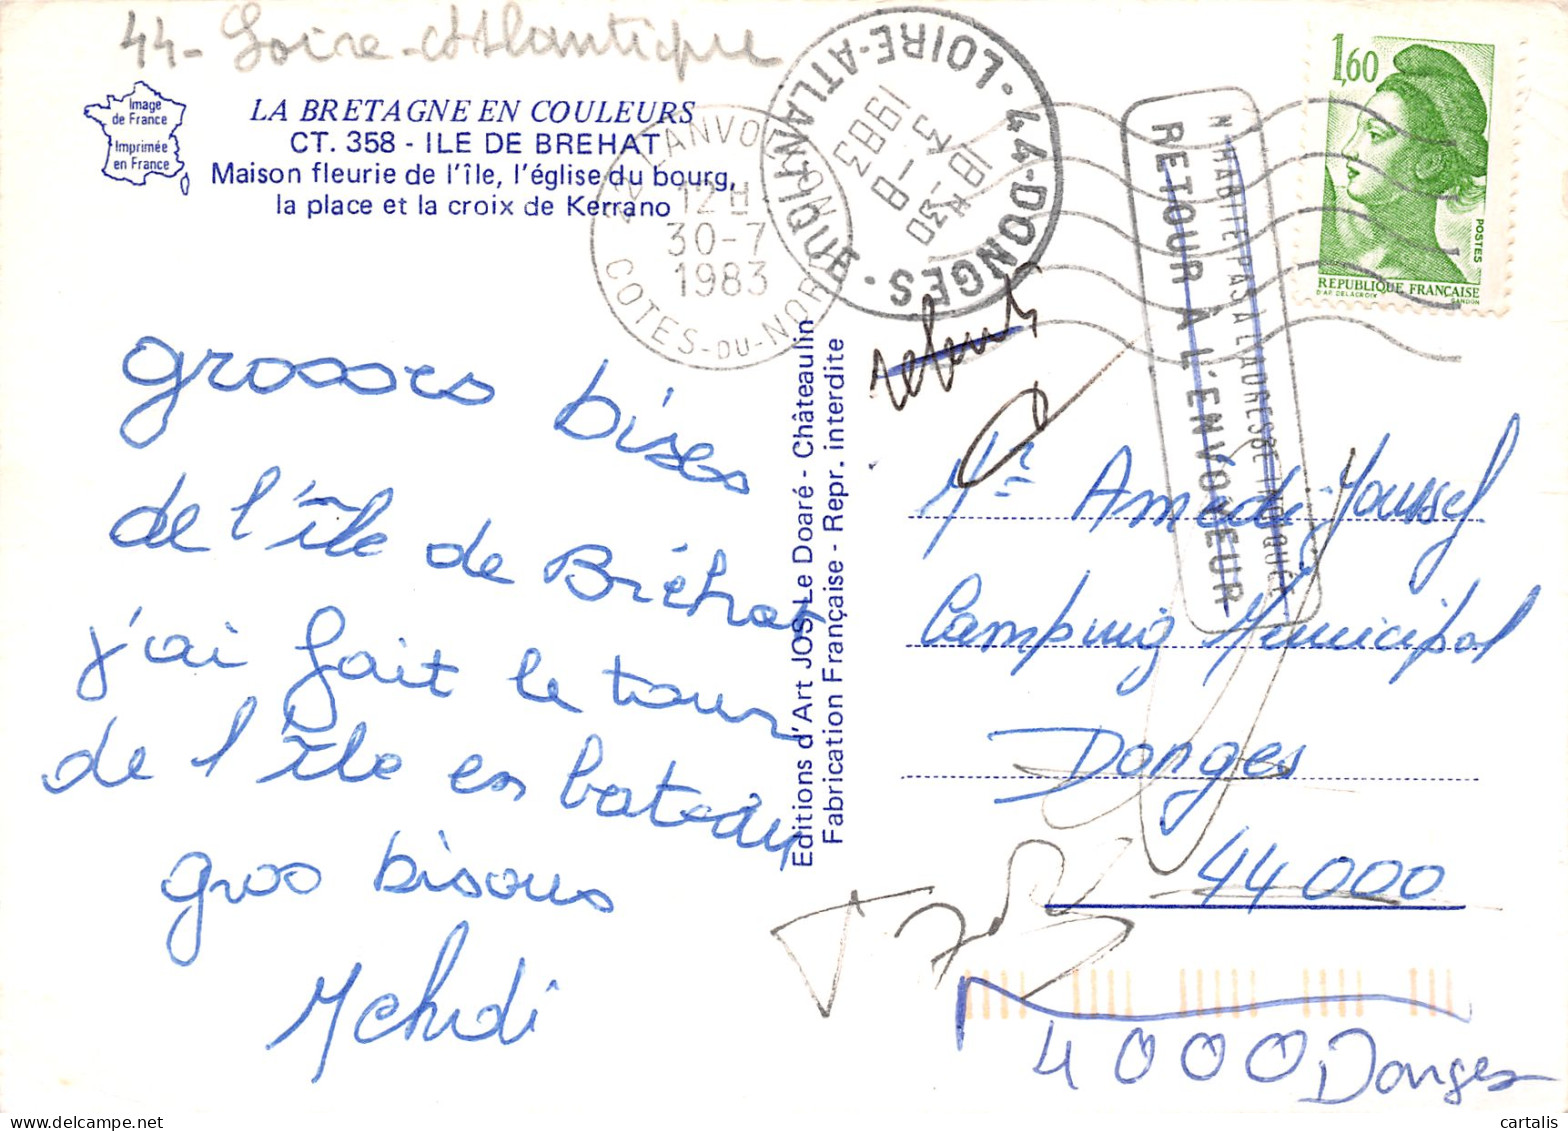 44 - Loire-Atlantique
Image
de France
Imprimée
en France
LA BRETAGNE EN COULEURS
CT. 358 - ILE DE BREHAT
Maison fleurie de l'île, l'église du bourg,
la place et la croix de Kerrano
22 LANVOLLON
12H
30-7
1983
COTES-DU-NORD
44-DONGES
LOIRE-ATLANTIQUE
18H30
3-8
1983
1,60
POSTES
REPUBLIQUE FRANÇAISE
D'AP. DELACROIX GANDON
N'HABITE PAS A L'ADRESSE INDIQUÉE
RETOUR À L'ENVOYEUR
grosses bises
de l'île de Bréhat
j'ai fait le tour
de l'île en bateau
gros bisous
Mehdi
Editions d'Art JOS Le Doaré - Châteaulin
Fabrication Française - Repr. interdite
Mr Amédi Youssef
Camping Municipal
Donges
44000
4000 Donges
cartalis